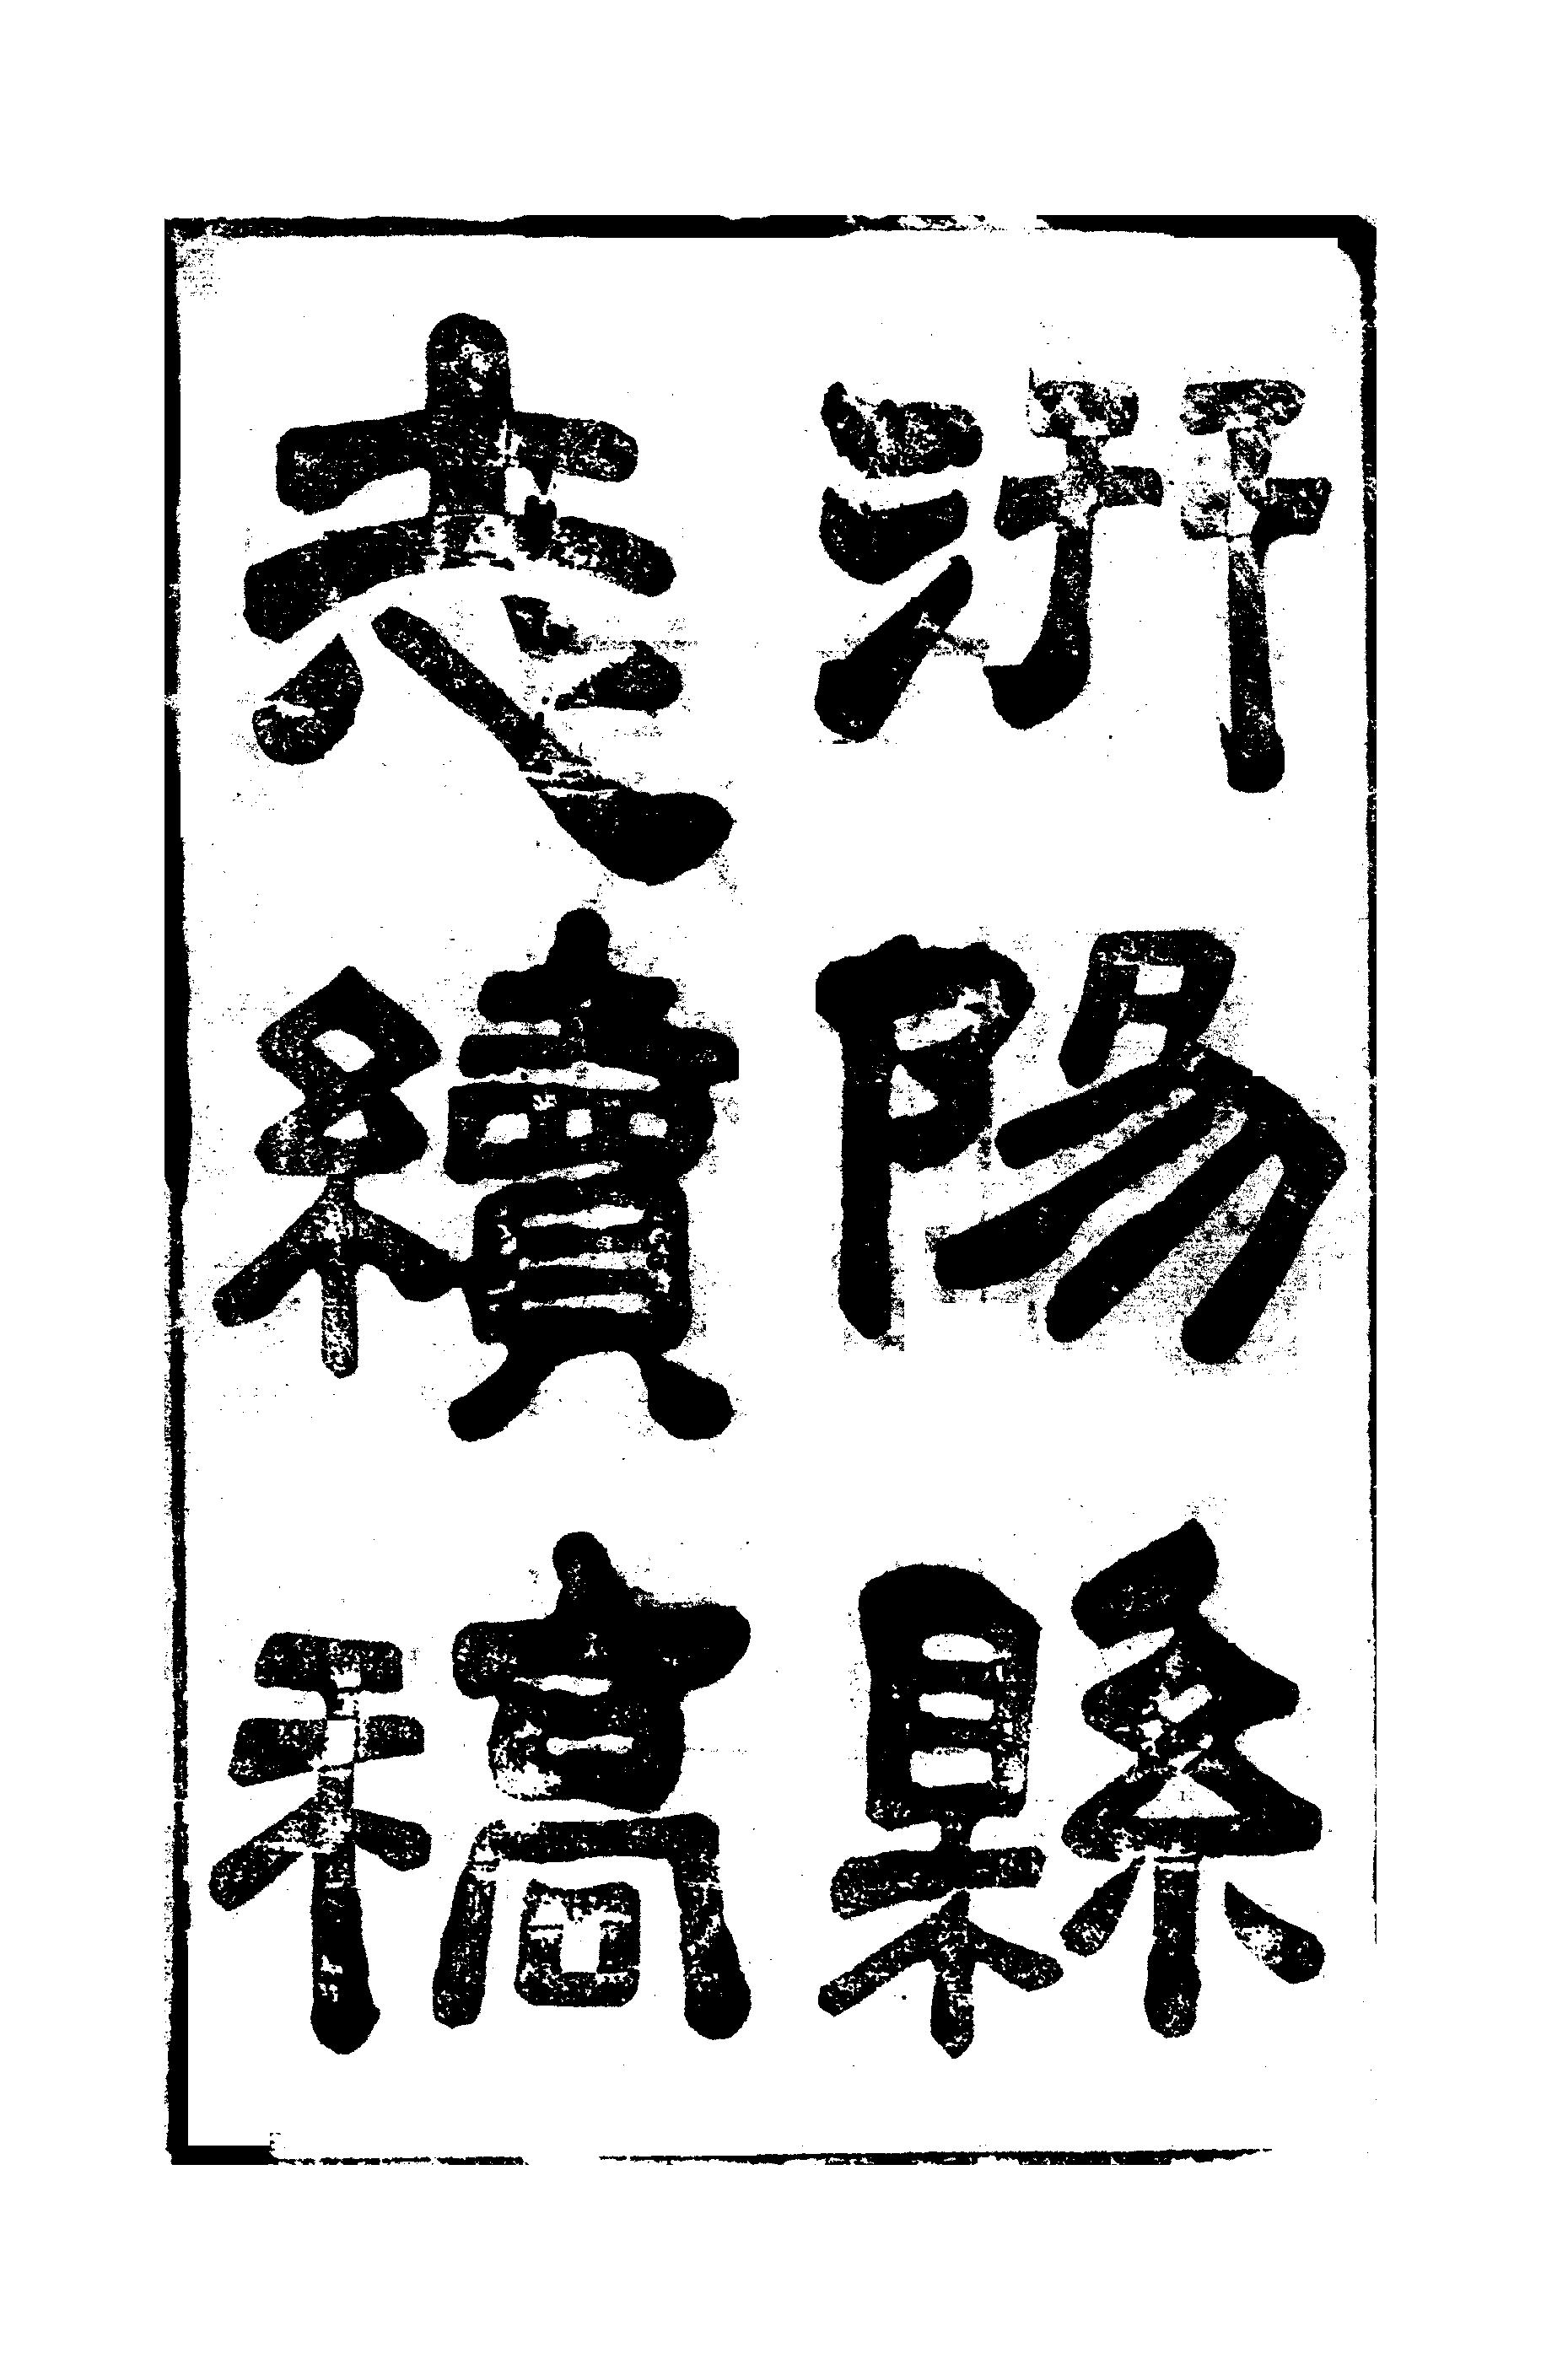 汧陽縣
志續稿